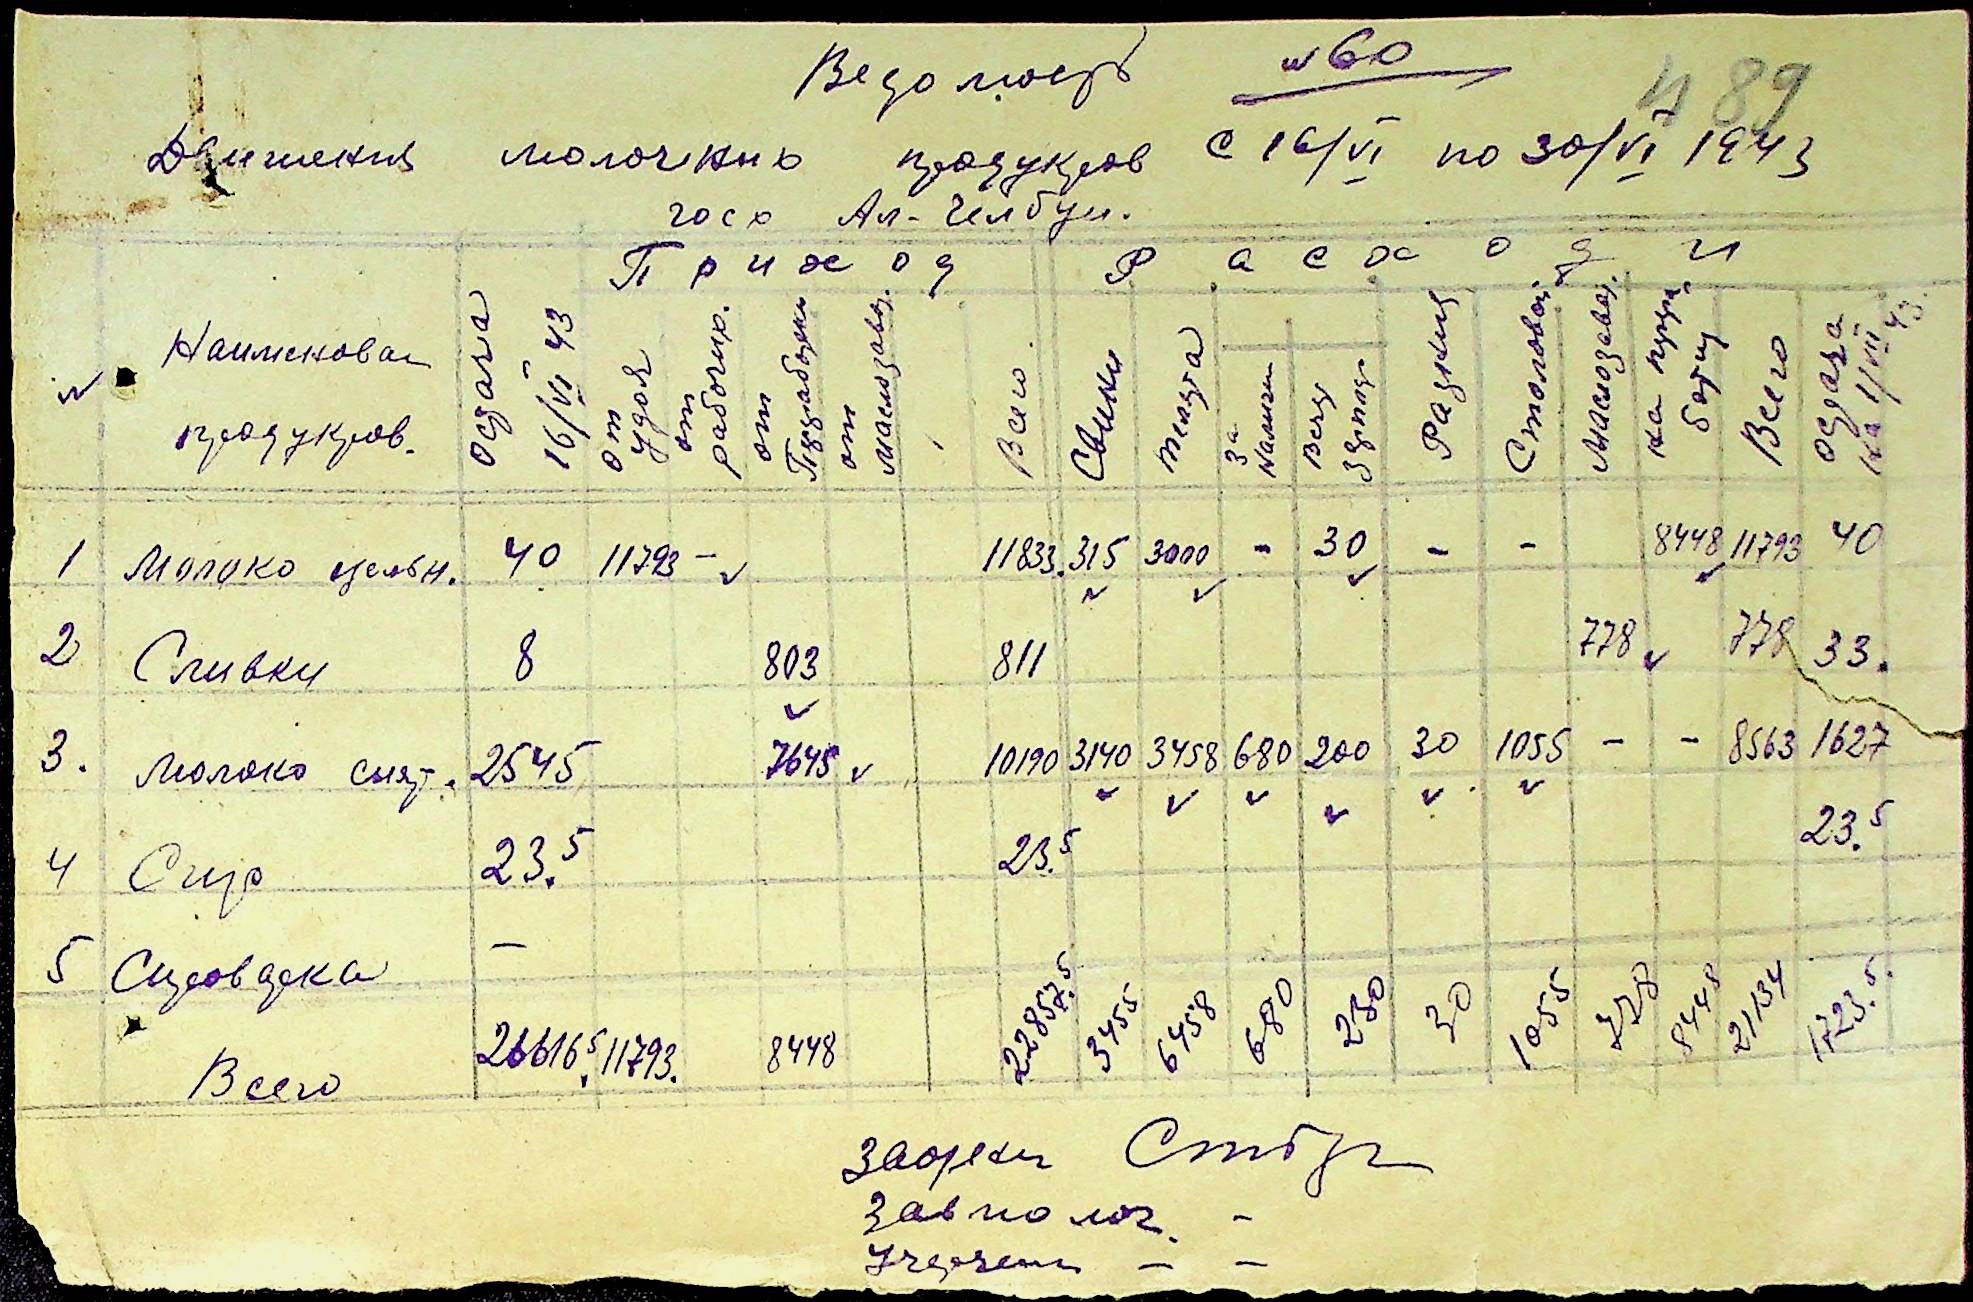 Ведомость № 60
489
Движения молочных продуктов с 16/VI по 30/VI 1943
госх Ал-Челбуц.
Приход Расходи
№ Наименован продуктов. Остача 16/VI 43 от удоя от рабочих. от Пераработки от маслозавод. Всего Свини телята За Налични Всего Расхния Столовой Маслозавод. на пере- ботку Всего Остача на 1/VII 43.
1 Молоко цельн. 40 11793 - 11833. 315 3000 - 30 - - 8448 11793 40
2 Сливки 8 803 811 778 778 33.
3. Молоко снят. 2545 7645 10190 3140 3458 680 200 30 1055 - - 8563 1627
4 Сир 23.5 23.5 23.5
5 Сироватка -
Всего 26616.5 11793. 8448 22857.5 3455 6458 680 230 30 1055 778 8448 21134 1723.5
Завферми
Завмолоч. -
Учетчети - -